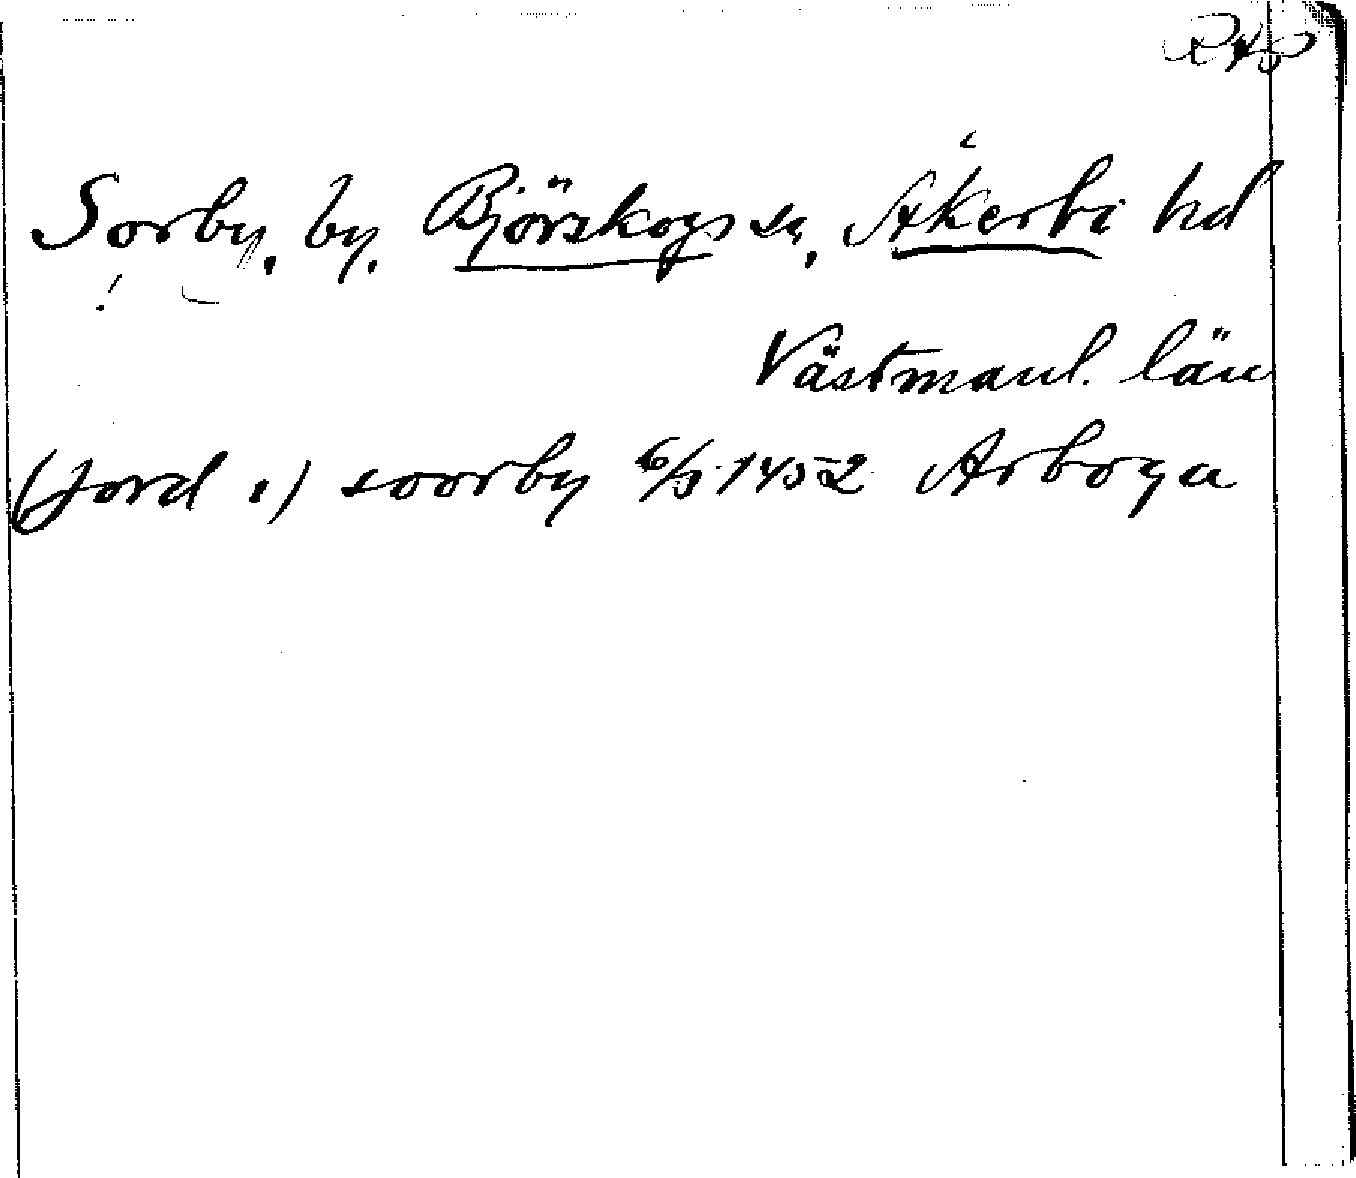 Sorby, by, Björskogs sn, Åkerbo hd
Västmanl. län
(jord i) soorby 6/5 1452 Arboga